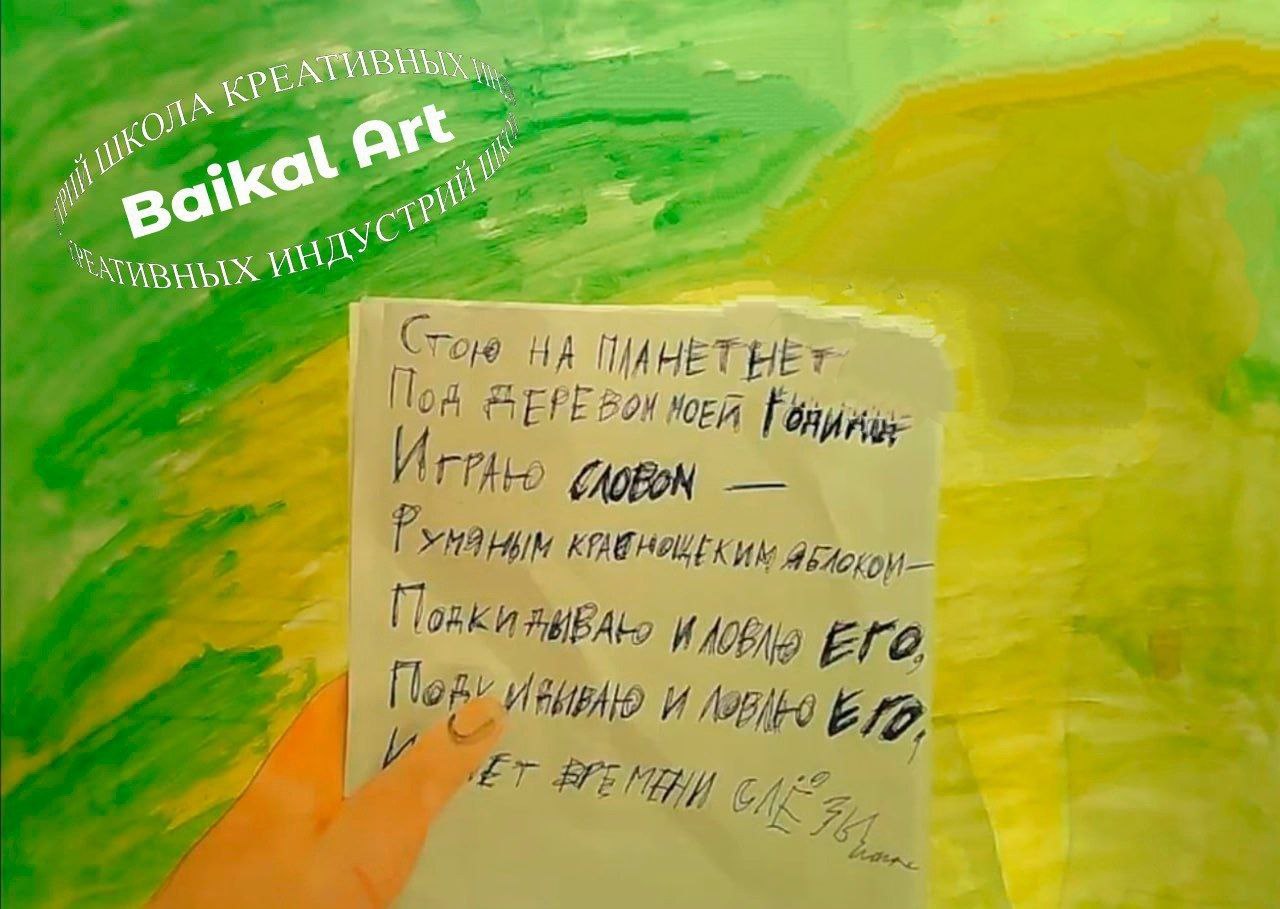 ШКОЛА КРЕАТИВНЫХ
Baikal Art
КРЕАТИВНЫХ ИНДУСТРИЙ
СТОЮ НА ПЛАНЕТ НЕТ
ПОД ДЕРЕВОМ МОЕЙ
ИГРАЮ СЛОВОМ —
РУМЯНЫМ КРАСНОЩЕКИМ ЯБЛОКОМ —
ПОДКИДЫВАЮ И ЛОВЛЮ ЕГО,
ПОДКИДЫВАЮ И ЛОВЛЮ ЕГО,
И НЕТ ВРЕМЕНИ СЛЁЗЫ